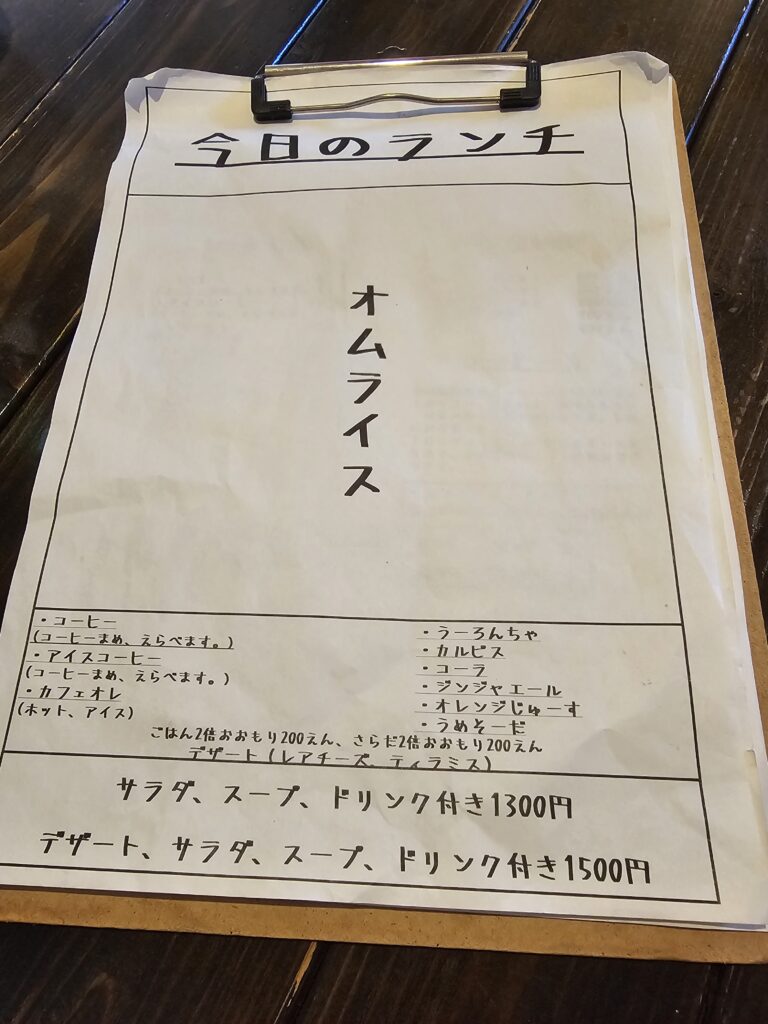 今日のランチ
オムライス
・コーヒー
(コーヒーまめ、えらべます。)
・アイスコーヒー
(コーヒーまめ、えらべます。)
・カフェオレ
(ホット、アイス)
・うーろんちゃ
・カルピス
・コーラ
・ジンジャエール
・オレンジじゅーす
・うめそーだ
ごはん2倍おおもり200えん、さらだ2倍おおもり200えん
デザート(レアチーズ、ティラミス)
サラダ、スープ、ドリンク付き1300円
デザート、サラダ、スープ、ドリンク付き1500円